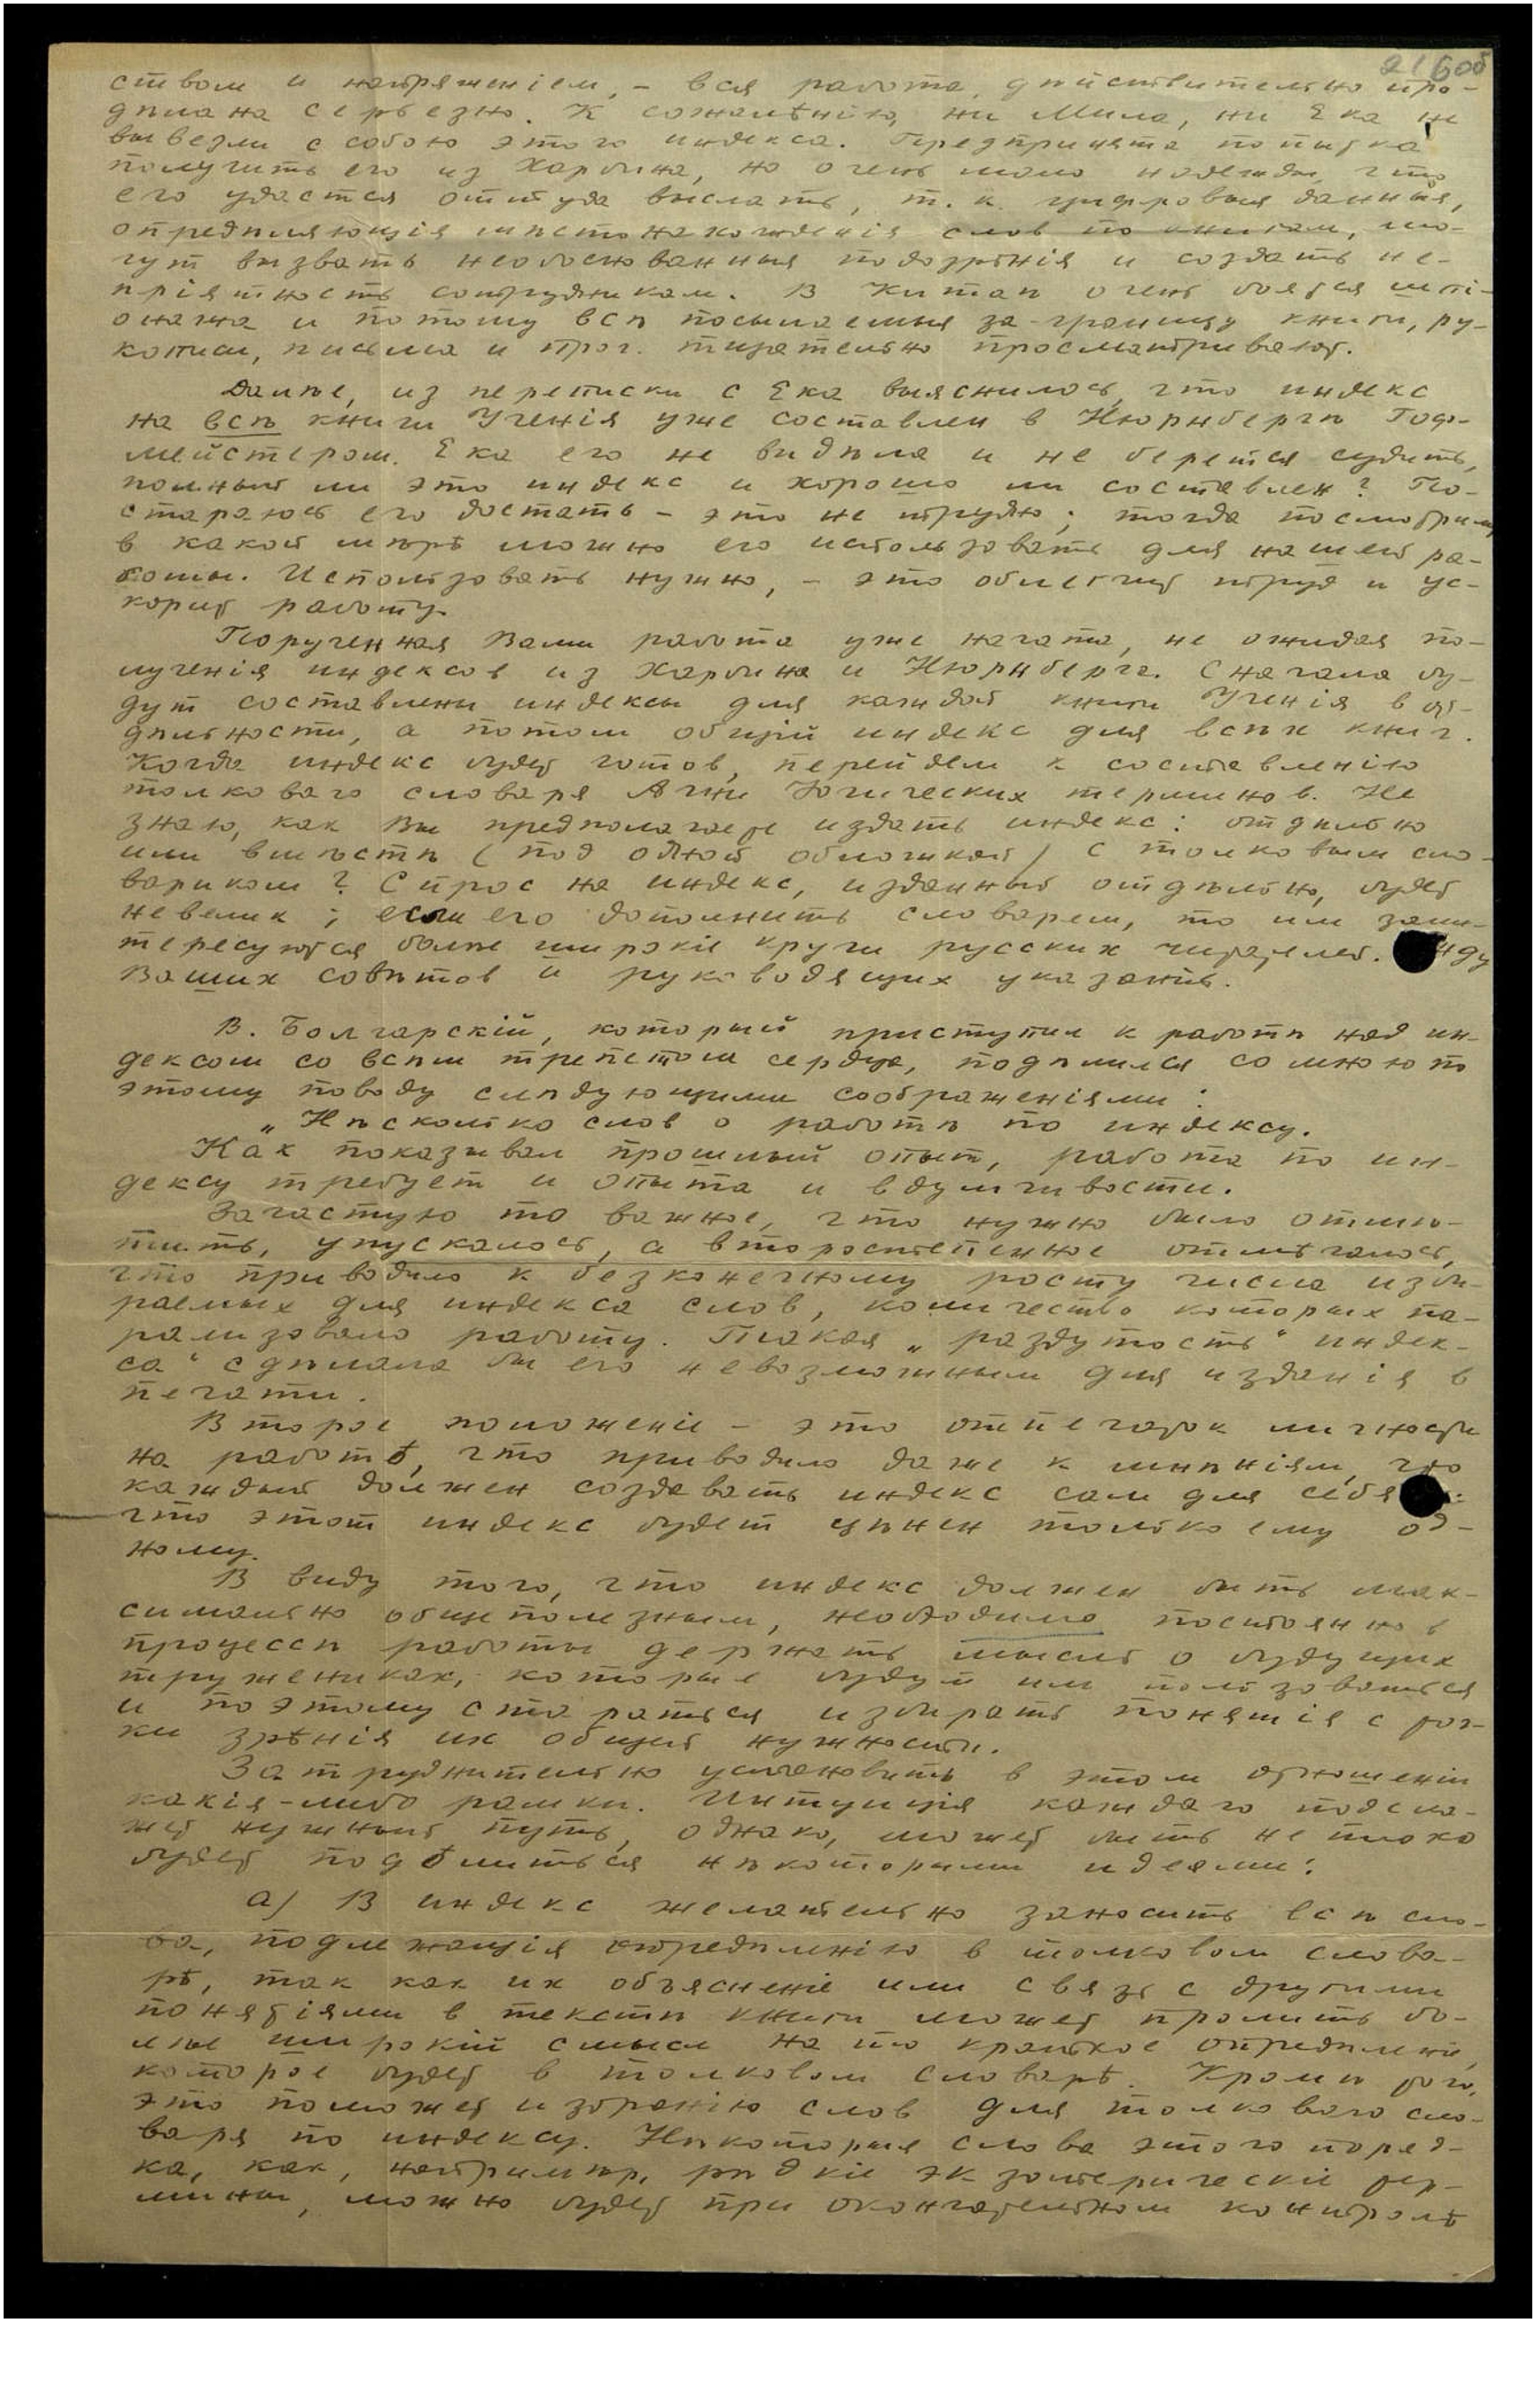 21600б
ством и напряженіем, – вся работа, дѣйствительно про-
дѣлана серьезно. К сожалѣнію, ни Мила, ни Ека не
вывезли с собою этого индекса. Предпринята попытка
получить его из Харбина, но очень мало надежды, что
его удастся оттуда выслать, т.к. цифровыя данныя,
опредѣляющія мѣстонахожденія слов по книгам, мо-
гут вызвать необоснованныя подозрѣнія и создать не-
пріятность сотрудникам. В Китаѣ очень боятся шпі-
онажа и потому всѣ посылаемыя за-границу книги, ру-
кописи, письма и проч. тщательно просматривают.
Далѣе, из переписки с Ека выяснилось, что индекс
на всѣ книги Ученія уже составлен в Нюрнбергѣ Гоф-
мейстером. Ека его не видѣла и не берется судить,
полный ли это индекс и хорошо ли составлен? По-
стараюсь его достать – это не трудно; тогда посмотрим,
в какой мѣрѣ можно его использовать для нашей ра-
боты. Использовать нужно, – это облегчит труд и ус-
корит работу.
Порученная Вами работа уже начата, не ожидая по-
лученія индексов из Харбина и Нюрнберга. Сначала бу-
дут составлены индексы для каждой книги Ученія в от-
дѣльности, а потом общій индекс для всѣх книг.
Когда индекс будет готов, перейдем к составленію
толковаго словаря Агни Іогических терминов. Не
знаю, как Вы предполагаете издать индекс: отдѣльно
или вмѣстѣ (под одной обложкой) с толковым сло-
вариком? Спрос на индекс, изданный отдѣльно, будет
невелик; если его дополнить словарем, то им заин-
тересуются болѣе широкіе круги русских читателей. Жду
Ваших совѣтов и руководящих указаній.
В. Болгарскій, который приступил к работѣ над ин-
дексом со всѣм трепетом сердца, подѣлился со мною по
этому поводу слѣдующими соображеніями:
„Нѣсколько слов о работѣ по индексу.
Как показывал прошлый опыт, работа по ин-
дексу требует и опыта и вдумчивости.
Зачастую то важное, что нужно было отмѣ-
тить, упускалось, а второстепенное отмѣчалось,
что приводило к безконечному росту числа изби-
раемых для индекса слов, количество которых па-
рализовало работу. Такая „раздутость“ индек-
са“ сдѣлала бы его невозможным для изданія в
печати.
Второе положеніе – это отпечаток личности
на работѣ, что приводило даже к мнѣніям, что
каждый должен создавать индекс сам для себя
что этот индекс будет цѣнен только ему од-
ному.
В виду того, что индекс должен быть мак-
симально общеполезным, необходимо постоянно в
процессѣ работы держать мысль о будущих
тружениках, которые будут им пользоваться
и поэтому стараться избирать понятія с точ-
ки зрѣнія их общей нужности.
Затруднительно установить в этом отношеніи
какія-либо рамки. Интуиція каждаго подска-
жет нужный путь, однако, может быть не плохо
будет подѣлиться нѣкоторыми идеями:
а) В индекс желательно заносить всѣ сло-
ва, подлежащія опредѣленію в толковом слова-
рѣ, так как их объясненіе или связь с другими
понятіями в текстѣ книги может пролить бо-
лѣе широкій смысл на то краткое опредѣленіе,
которое будет в толковом словарѣ. Кромѣ того,
это поможет избранію слов для толковаго сло-
варя по индексу. Нѣкоторыя слова этого поряд-
ка, как, напримѣр, рѣдкіе экзотерическіе тер-
мины, можно будет при окончательном контролѣ